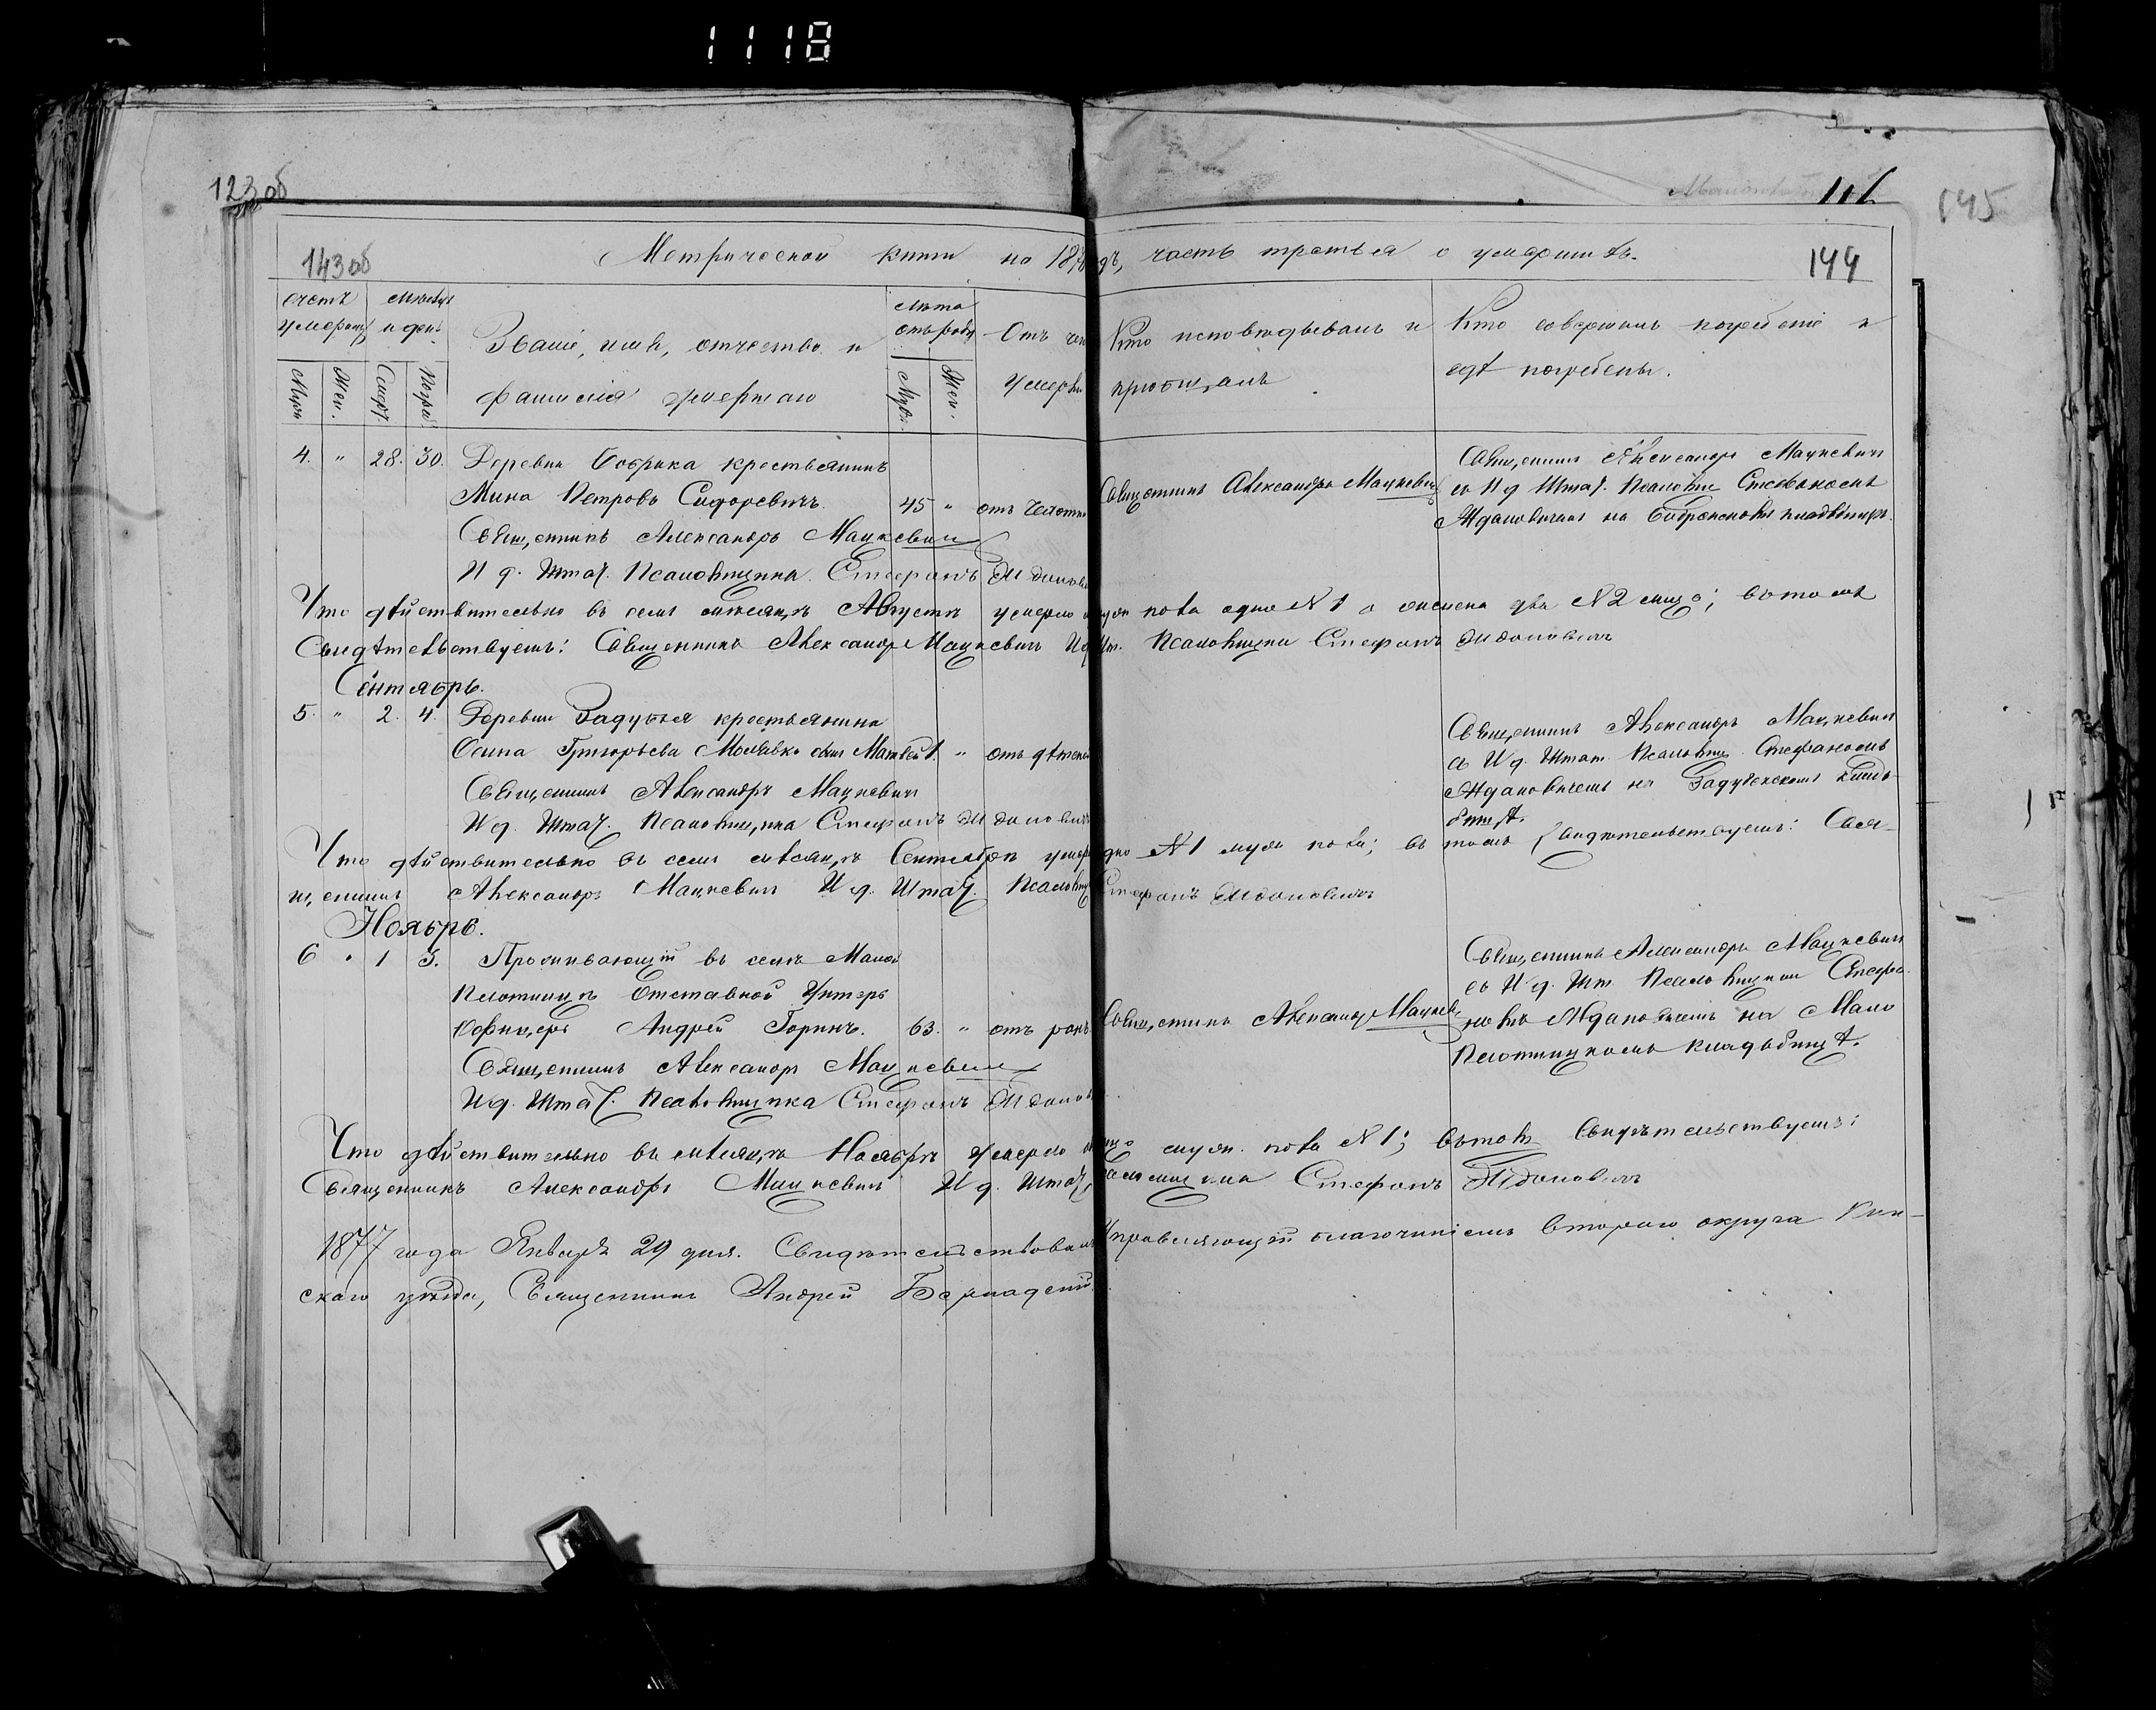 1118
123 об
145
143 об
Метрической книги на 187 дъ, часть третья о умершихъ.
144
счетъ умерш
Мѣсяцъ и день
Званіе, имя, отчество и
фамилія умершаго
Лѣта отъ рода
Отъ чего
умерли
Кто исповѣдывалъ и
пріобщалъ
Кто совершалъ погребеніе и
гдѣ погребены.
Муж.
Жен.
Смерт.
Погреб
Муж.
Жен.
4. " 28. 30. Деревни Бобрика крестьянинъ
Мина Петровъ Сидоревичъ. 45 " отъ чахотки
Священникъ Александръ Мацкевичъ
И д. Штат. Псаломщика Стефанъ Жданови
Священникъ Александръ Мацкевичъ
Священникъ Александръ Мацкевичъ
съ И д Штат. Стефаномъ
Ждановичемъ на
Что дѣйствительно въ семъ мѣсяцѣ Августѣ умерло муж пола одно N 1 а женска два N 2 лица; въ томъ
Свидѣтельствуемъ: Священникъ Александръ Мацкевичъ И д Шт. Псаломщика Стефанъ Ждановичъ
Сентябрь.
5. " 2. 4. Деревни Задубья крестьянина
Осипа Григорьева сынъ Матвей 1. "
Священникъ Александръ Мацкевичъ
И д. Штат. Псаломщика Стефанъ Ждановичъ
Священникъ Александръ Мацкевичъ
съ И д. Штат. Псаломщ. Стефаномъ
Ждановичемъ на Задубскомъ кладъ-
бищѣ.
Что дѣйствительно въ семъ мѣсяцѣ Сентябрѣ умерло дно N 1 муж пола; въ томъ Свидѣтельствуемъ: Свя-
щенникъ Александръ Мацкевичъ И д. Штат. Псаломщ Стефанъ Ждановичъ
Ноябрь.
6 " 1 3. Проживающій въ селѣ Мало
Плотницѣ Отставной Унтеръ
Офицеръ Андрей Горинъ. 63. " отъ ранъ
Священникъ Александръ Мацкевичъ
И д. Штат. Псаломщика Стефанъ Жданов
Священникъ Александръ Мацкев
Священникъ Александръ Мацкевичъ
съ И д. Шт. Псаломщикомъ Стефа-
номъ Ждановичемъ на Мало
Плотницкомъ кладъбищѣ.
Что дѣйствительно въ мѣсяцѣ Ноябрѣ умерло лицо муж. пола N 1; въ томъ Свидѣтельствуемъ:
Священникъ Александръ Мацкевичъ И д. Штат. Псаломщика Стефанъ Ждановичъ
1877 года Января 29 дня. Свидѣтельствовалъ Управляющій благочиніемъ втораго округа Пин-
скаго уѣзда, Священникъ Андрей